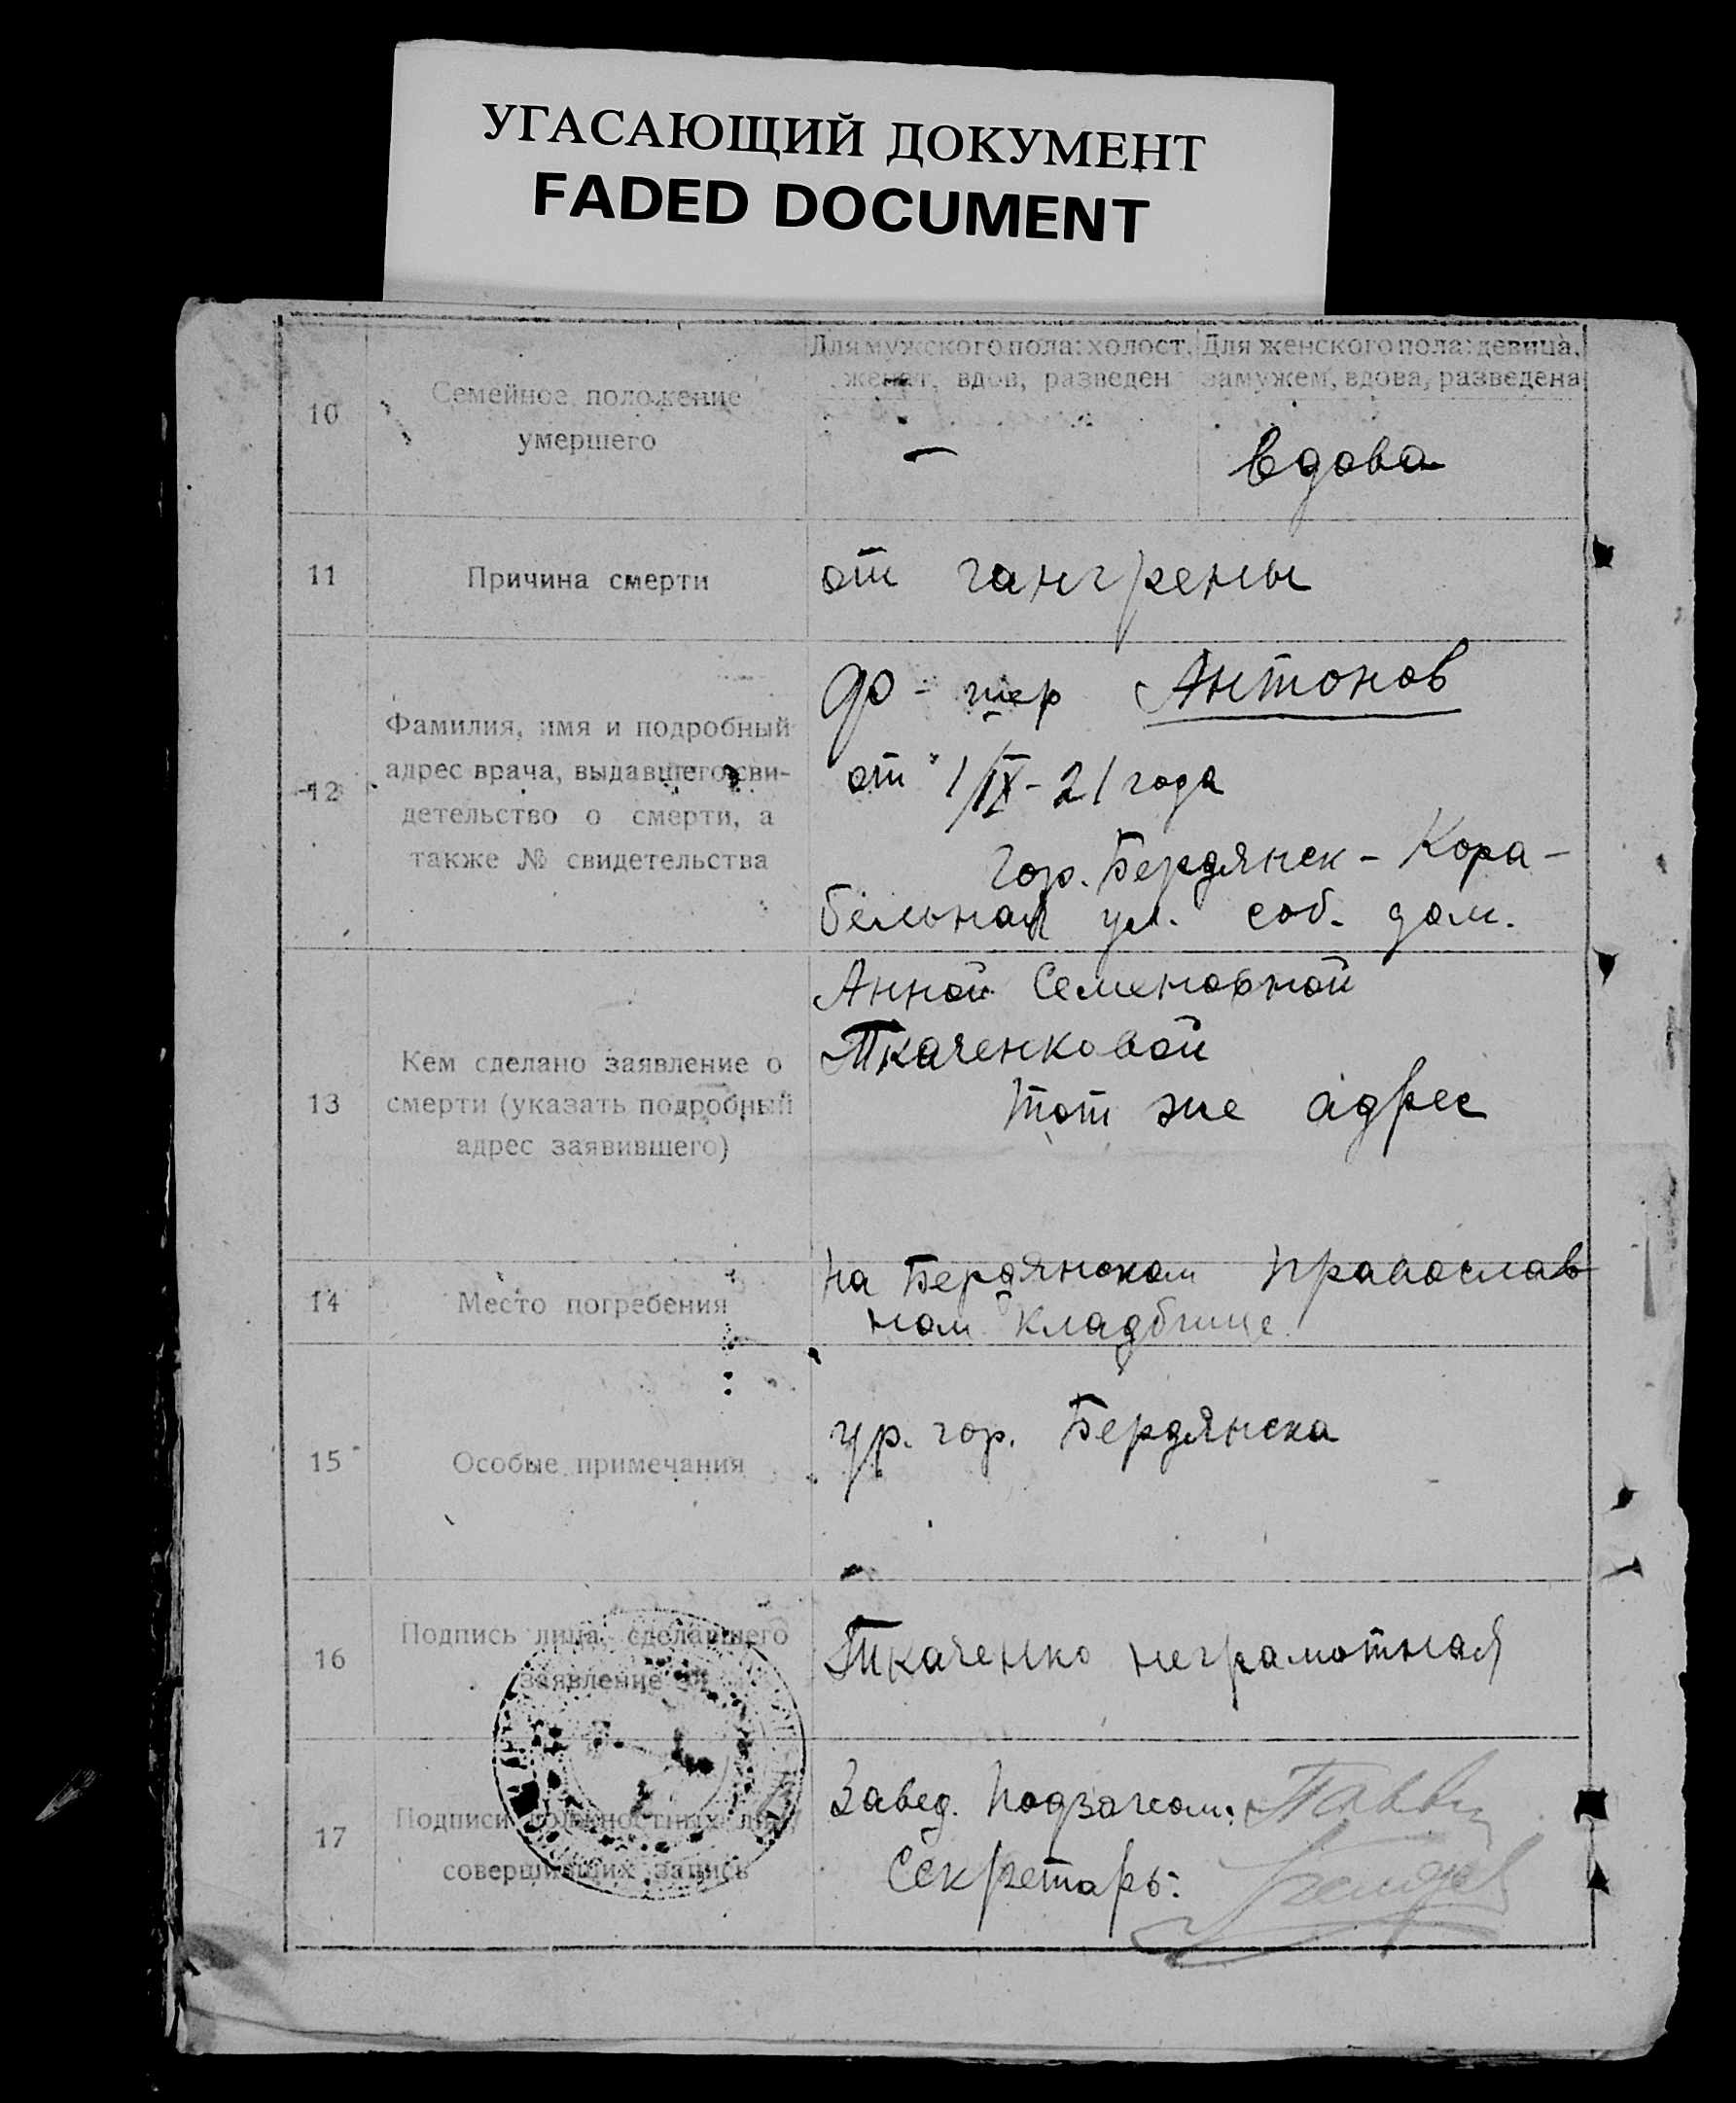 УГАСАЮЩИЙ ДОКУМЕНТ
FADED DOCUMENT
Для мужского пола: холост,
женат, вдов, разведен
Для женского пола: девица,
замужем, вдова, разведена
10
Семейное положение
умершего
—
вдова
11
Причина смерти
от гангрены
12
Фамилия, имя и подробный
адрес врача, выдавшего сви-
детельство о смерти, а
также № свидетельства
до-тер Антонов
от 1/IX-21 года
гор. Бердянск - Кора-
бельная ул. соб. дом.
13
Кем сделано заявление о
смерти (указать подробный
адрес заявившего)
Анной Семеновной
Ткаченковой
тот же адрес
14
Место погребения
на Бердянском православ
ном кладбище
15
Особые примечания
ур. гор. Бердянска
16
Подпись лица, сделавшего
заявление
Ткаченко неграмотная
17
Подписи должностных лиц,
совершивших запись
Завед. Подзагсом:
Секретарь: